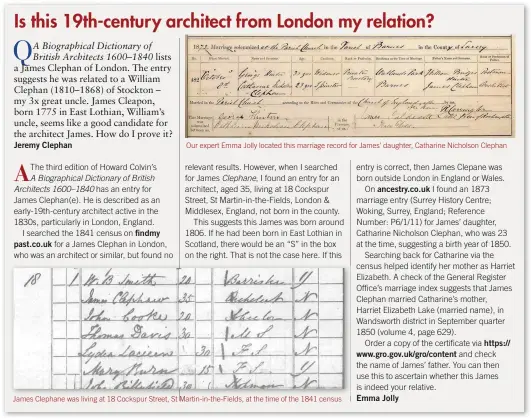 Is this 19th-century architect from London my relation?
Q A Biographical Dictionary of
British Architects 1600–1840 lists
a James Clephan of London. The entry
suggests he was related to a William
Clephan (1810–1868) of Stockton –
my 3x great uncle. James Cleapon,
born 1775 in East Lothian, William's
uncle, seems like a good candidate for
the architect James. How do I prove it?
Jeremy Clephan
Our expert Emma Jolly located this marriage record for James' daughter, Catharine Nicholson Clephan
A The third edition of Howard Colvin's
A Biographical Dictionary of British
Architects 1600–1840 has an entry for
James Clephan(e). He is described as an
early-19th-century architect active in the
1830s, particularly in London, England.
I searched the 1841 census on findmy
past.co.uk for a James Clephan in London,
who was an architect or similar, but found no
relevant results. However, when I searched
for James Clephane, I found an entry for an
architect, aged 35, living at 18 Cockspur
Street, St Martin-in-the-Fields, London &
Middlesex, England, not born in the county.
This suggests this James was born around
1806. If he had been born in East Lothian in
Scotland, there would be an "S" in the box
on the right. That is not the case here. If this
entry is correct, then James Clepane was
born outside London in England or Wales.
On ancestry.co.uk I found an 1873
marriage entry (Surrey History Centre;
Woking, Surrey, England; Reference
Number: P6/1/11) for James' daughter,
Catharine Nicholson Clephan, who was 23
at the time, suggesting a birth year of 1850.
Searching back for Catharine via the
census helped identify her mother as Harriet
Elizabeth. A check of the General Register
Office's marriage index suggests that James
Clephan married Catharine's mother,
Harriet Elizabeth Lake (married name), in
Wandsworth district in September quarter
1850 (volume 4, page 629).
Order a copy of the certificate via https://
www.gro.gov.uk/gro/content and check
the name of James' father. You can then
use this to ascertain whether this James
is indeed your relative.
Emma Jolly
18 1 W. B Smith 20 Barrister Y
James Clephane 35 Architect N
John Cooke 20 N
Thomas Davis 30 M S N
30 F S N
Mary Burn 15 F S Y
30 N
James Clephan was living at 18 Cockspur Street, St Martin-in-the-Fields, at the time of the 1841 census